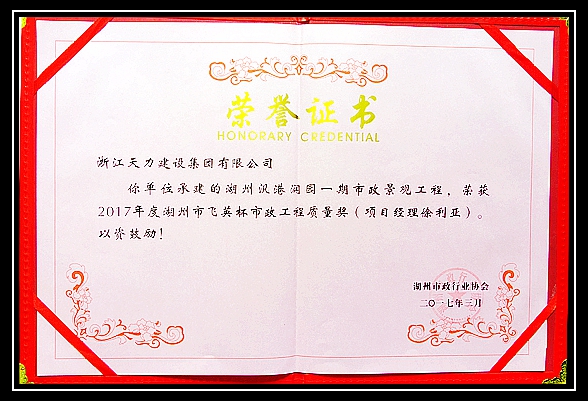 荣誉证书
HONORARY CREDENTIAL
浙江天力建设集团有限公司
你单位承建的湖州汎港润园一期市政景观工程，荣获
2017年度湖州市飞英杯市政工程质量奖（项目经理徐利亚）。
以资鼓励！
湖州市政行业协会
二〇一七年三月